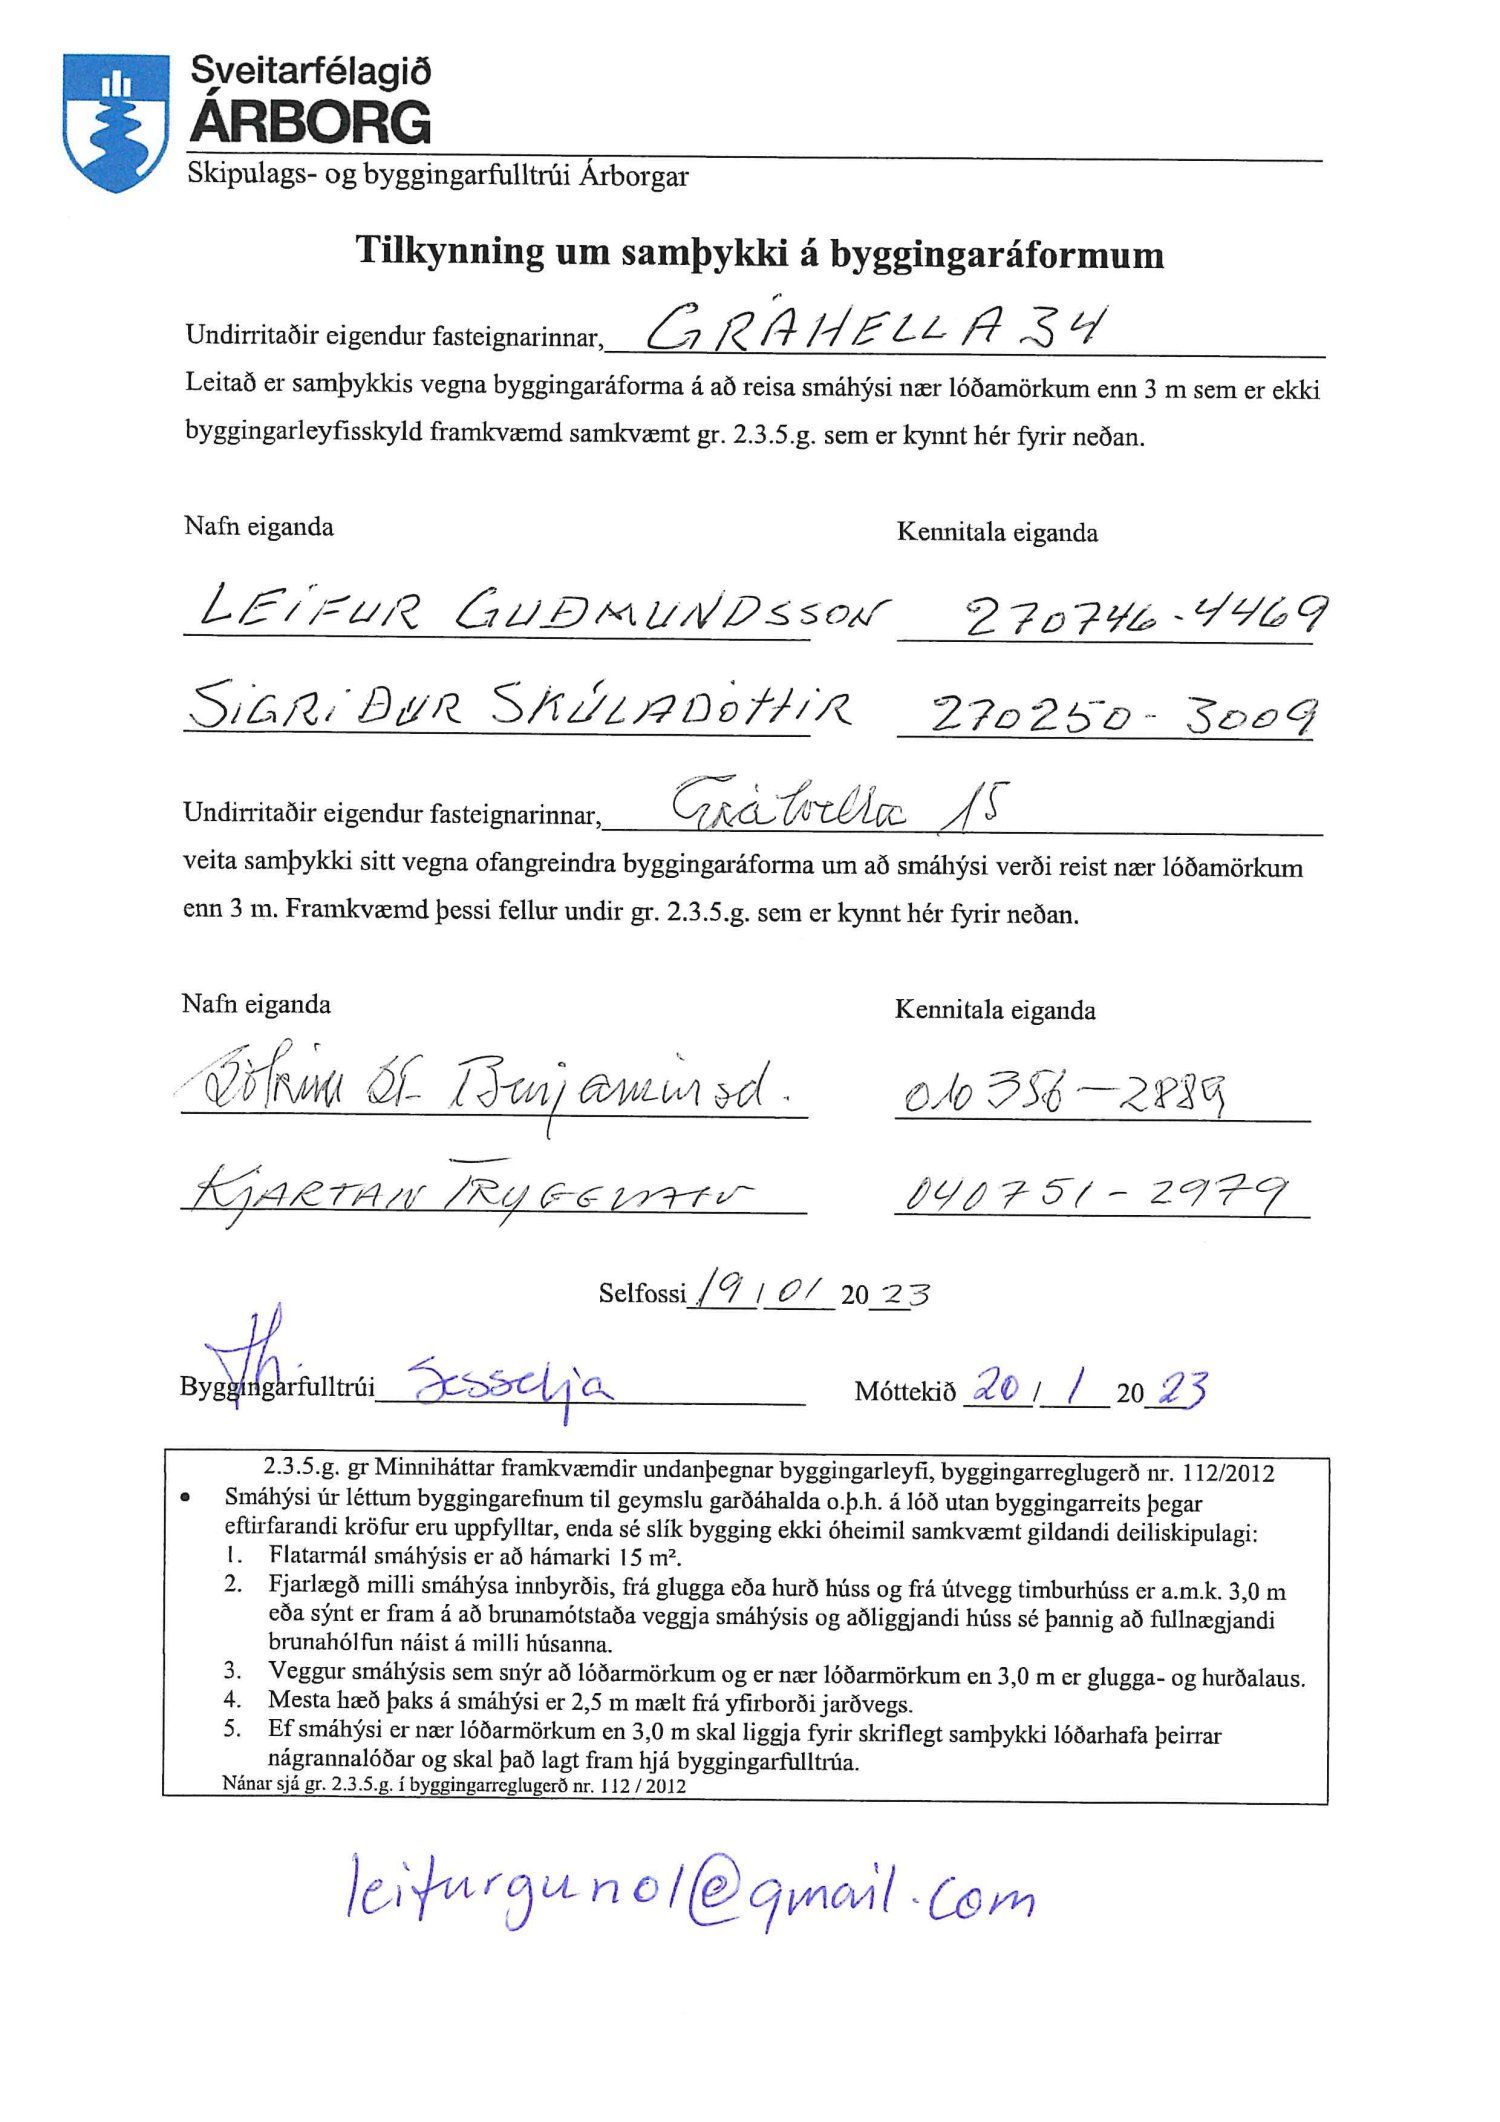 Sveitarfélagið
ÁRBORG
Skipulags- og byggingarfulltrúi Árborgar
Tilkynning um samþykki á byggingaráformum
Undirritaðir eigendur fasteignarinnar, GRÁHELLA 34
Leitað er samþykkis vegna byggingaráforma á að reisa smáhýsi nær lóðamörkum enn 3 m sem er ekki
byggingarleyfisskyld framkvæmd samkvæmt gr. 2.3.5.g. sem er kynnt hér fyrir neðan.
Nafn eiganda Kennitala eiganda
LEIFUR GUÐMUNDSSON 270746-4469
SIGRIÐUR SKÚLADÓTTIR 270250-3009
Undirritaðir eigendur fasteignarinnar, Gráhella 15
veita samþykki sitt vegna ofangreindra byggingaráforma um að smáhýsi verði reist nær lóðamörkum
enn 3 m. Framkvæmd þessi fellur undir gr. 2.3.5.g. sem er kynnt hér fyrir neðan.
Nafn eiganda Kennitala eiganda
Benjamínsd. 010356-2889
KJARTAN TRYGGVASON 040751-2979
Selfossi 19 / 01 2023
Byggingarfulltrúi Sesselja Móttekið 20 / 1 2023
2.3.5.g. gr Minniháttar framkvæmdir undanþegnar byggingarleyfi, byggingarreglugerð nr. 112/2012
• Smáhýsi úr léttum byggingarefnum til geymslu garðáhalda o.þ.h. á lóð utan byggingarreits þegar
eftirfarandi kröfur eru uppfylltar, enda sé slík bygging ekki óheimil samkvæmt gildandi deiliskipulagi:
1. Flatarmál smáhýsis er að hámarki 15 m².
2. Fjarlægð milli smáhýsa innbyrðis, frá glugga eða hurð húss og frá útvegg timburhúss er a.m.k. 3,0 m
eða sýnt er fram á að brunamótstaða veggja smáhýsis og aðliggjandi húss sé þannig að fullnægjandi
brunahólfun náist á milli húsanna.
3. Veggur smáhýsis sem snýr að lóðarmörkum og er nær lóðarmörkum en 3,0 m er glugga- og hurðalaus.
4. Mesta hæð þaks á smáhýsi er 2,5 m mælt frá yfirborði jarðvegs.
5. Ef smáhýsi er nær lóðarmörkum en 3,0 m skal liggja fyrir skriflegt samþykki lóðarhafa þeirrar
nágrannalóðar og skal það lagt fram hjá byggingarfulltrúa.
Nánar sjá gr. 2.3.5.g. í byggingarreglugerð nr. 112 / 2012
leifurguno1@gmail.com